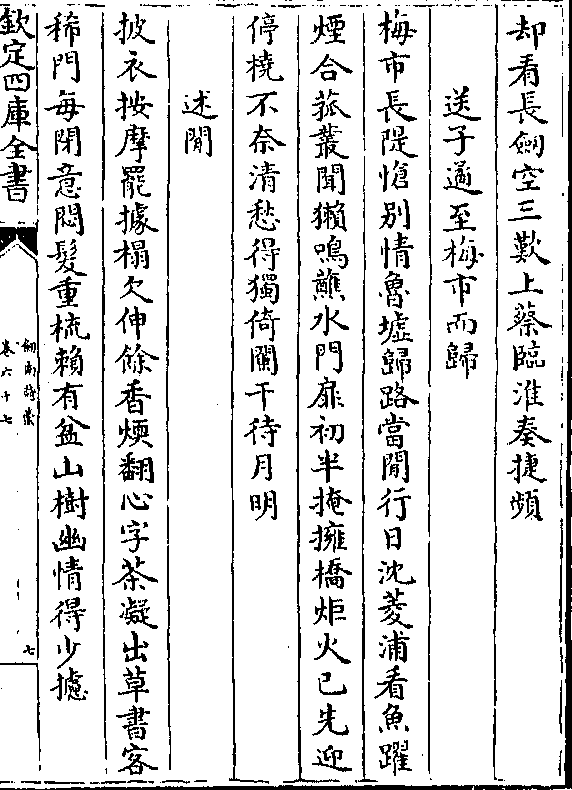 却看長劒空三歎上蔡臨淮奏捷頻
送子遹至梅市而歸
梅市長隄愴别情魯墟歸路當閒行日沈菱浦看魚躍
煙合菰叢聞獺鳴蘸水門扉初半掩擁橋炬火已先迎
停橈不奈清愁得獨倚闌干待月明
述閒
披衣按摩罷據榻欠伸餘香燠翻心字茶凝出草書客
稀門毎閉意悶髮重梳賴有盆山樹幽情得少攄
欽定四庫全書
劒南詩藁
卷六十七
七